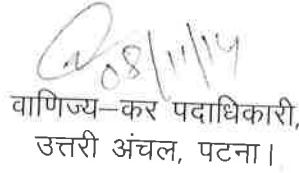 08/11/14
वाणिज्य–कर पदाधिकारी,
उत्तरी अंचल, पटना।